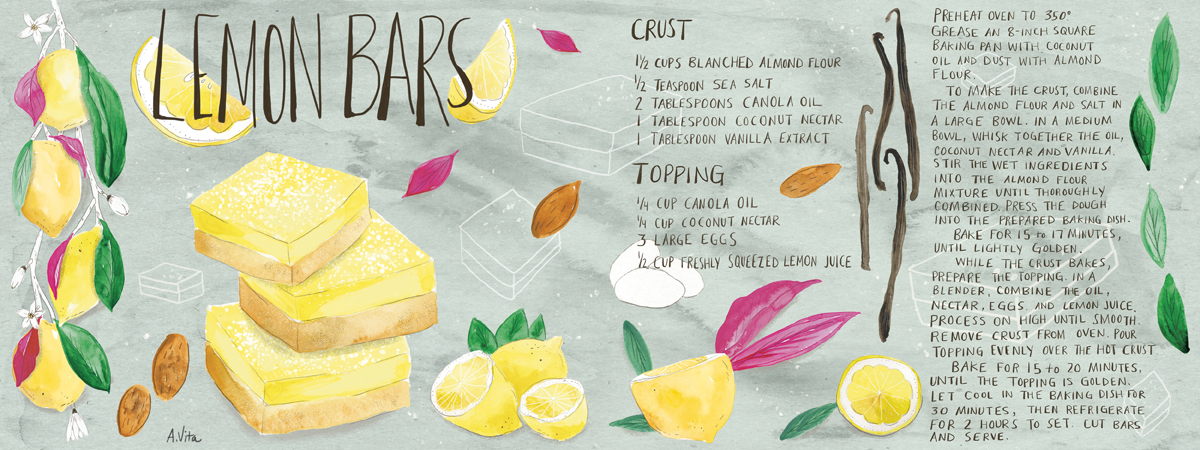 LEMON BARS
CRUST
1½ CUPS BLANCHED ALMOND FLOUR
½ TEASPOON SEA SALT
2 TABLESPOONS CANOLA OIL
1 TABLESPOON COCONUT NECTAR
1 TABLESPOON VANILLA EXTRACT
TOPPING
¼ CUP CANOLA OIL
¼ CUP COCONUT NECTAR
3 LARGE EGGS
½ CUP FRESHLY SQUEEZED LEMON JUICE
PREHEAT OVEN TO 350°
GREASE AN 8-INCH SQUARE
BAKING PAN WITH COCONUT
OIL AND DUST WITH ALMOND
FLOUR.
TO MAKE THE CRUST, COMBINE
THE ALMOND FLOUR AND SALT IN
A LARGE BOWL. IN A MEDIUM
BOWL, WHISK TOGETHER THE OIL,
COCONUT NECTAR AND VANILLA.
STIR THE WET INGREDIENTS
INTO THE ALMOND FLOUR
MIXTURE UNTIL THOROUGHLY
COMBINED. PRESS THE DOUGH
INTO THE PREPARED BAKING DISH.
BAKE FOR 15 to 17 MINUTES,
UNTIL LIGHTLY GOLDEN.
WHILE THE CRUST BAKES,
PREPARE THE TOPPING. IN A
BLENDER, COMBINE THE OIL,
NECTAR, EGGS, AND LEMON JUICE.
PROCESS ON HIGH UNTIL SMOOTH.
REMOVE CRUST FROM OVEN. POUR
TOPPING EVENLY OVER THE HOT CRUST
BAKE FOR 15 to 20 MINUTES,
UNTIL THE TOPPING IS GOLDEN.
LET COOL IN THE BAKING DISH FOR
30 MINUTES, THEN REFRIGERATE
FOR 2 HOURS TO SET. CUT BARS
AND SERVE.
A.Vita